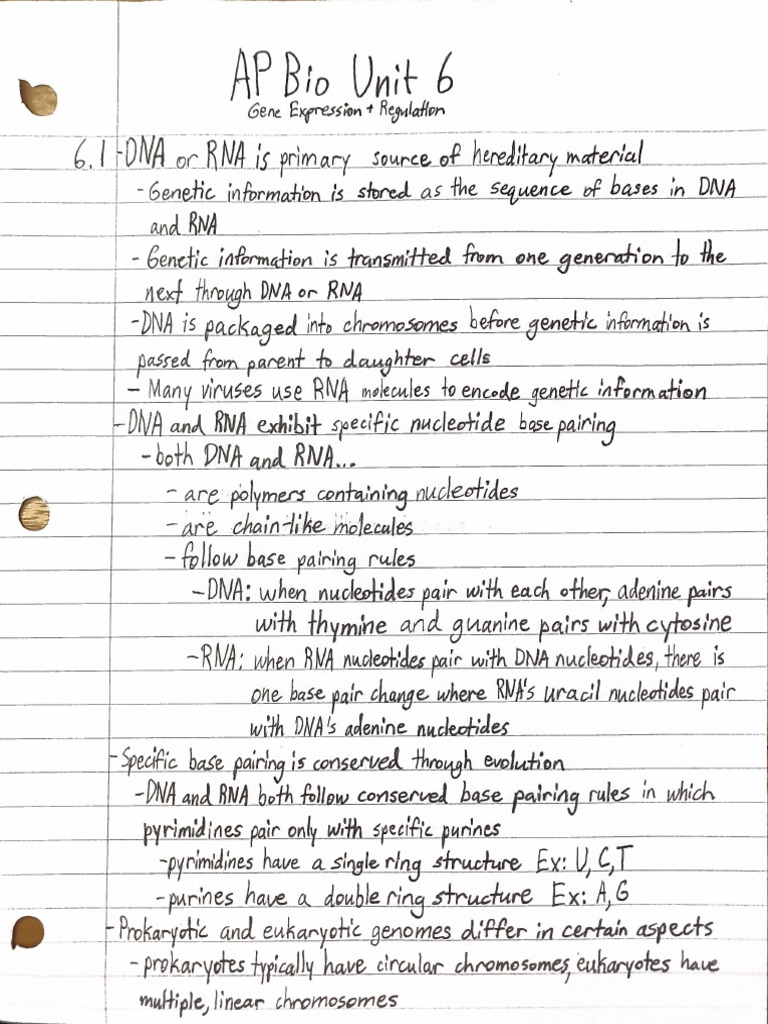 AP Bio Unit 6
Gene Expression + Regulation
6.1 -DNA or RNA is primary source of hereditary material
- Genetic information is stored as the sequence of bases in DNA
and RNA
- Genetic information is transmitted from one generation to the
next through DNA or RNA
-DNA is packaged into chromosomes before genetic information is
passed from parent to daughter cells
- Many viruses use RNA molecules to encode genetic information
-DNA and RNA exhibit specific nucleotide base pairing
-both DNA and RNA...
- are polymers containing nucleotides
- are chain-like molecules
- follow base pairing rules
-DNA: when nucleotides pair with each other, adenine pairs
with thymine and guanine pairs with cytosine
-RNA: when RNA nucleotides pair with DNA nucleotides, there is
one base pair change where RNA's uracil nucleotides pair
with DNA's adenine nucleotides
-Specific base pairing is conserved through evolution
-DNA and RNA both follow conserved base pairing rules in which
pyrimidines pair only with specific purines
-pyrimidines have a single ring structure Ex: U, C, T
-purines have a double ring structure Ex: A, G
-Prokaryotic and eukaryotic genomes differ in certain aspects
-prokaryotes typically have circular chromosomes, eukaryotes have
multiple, linear chromosomes